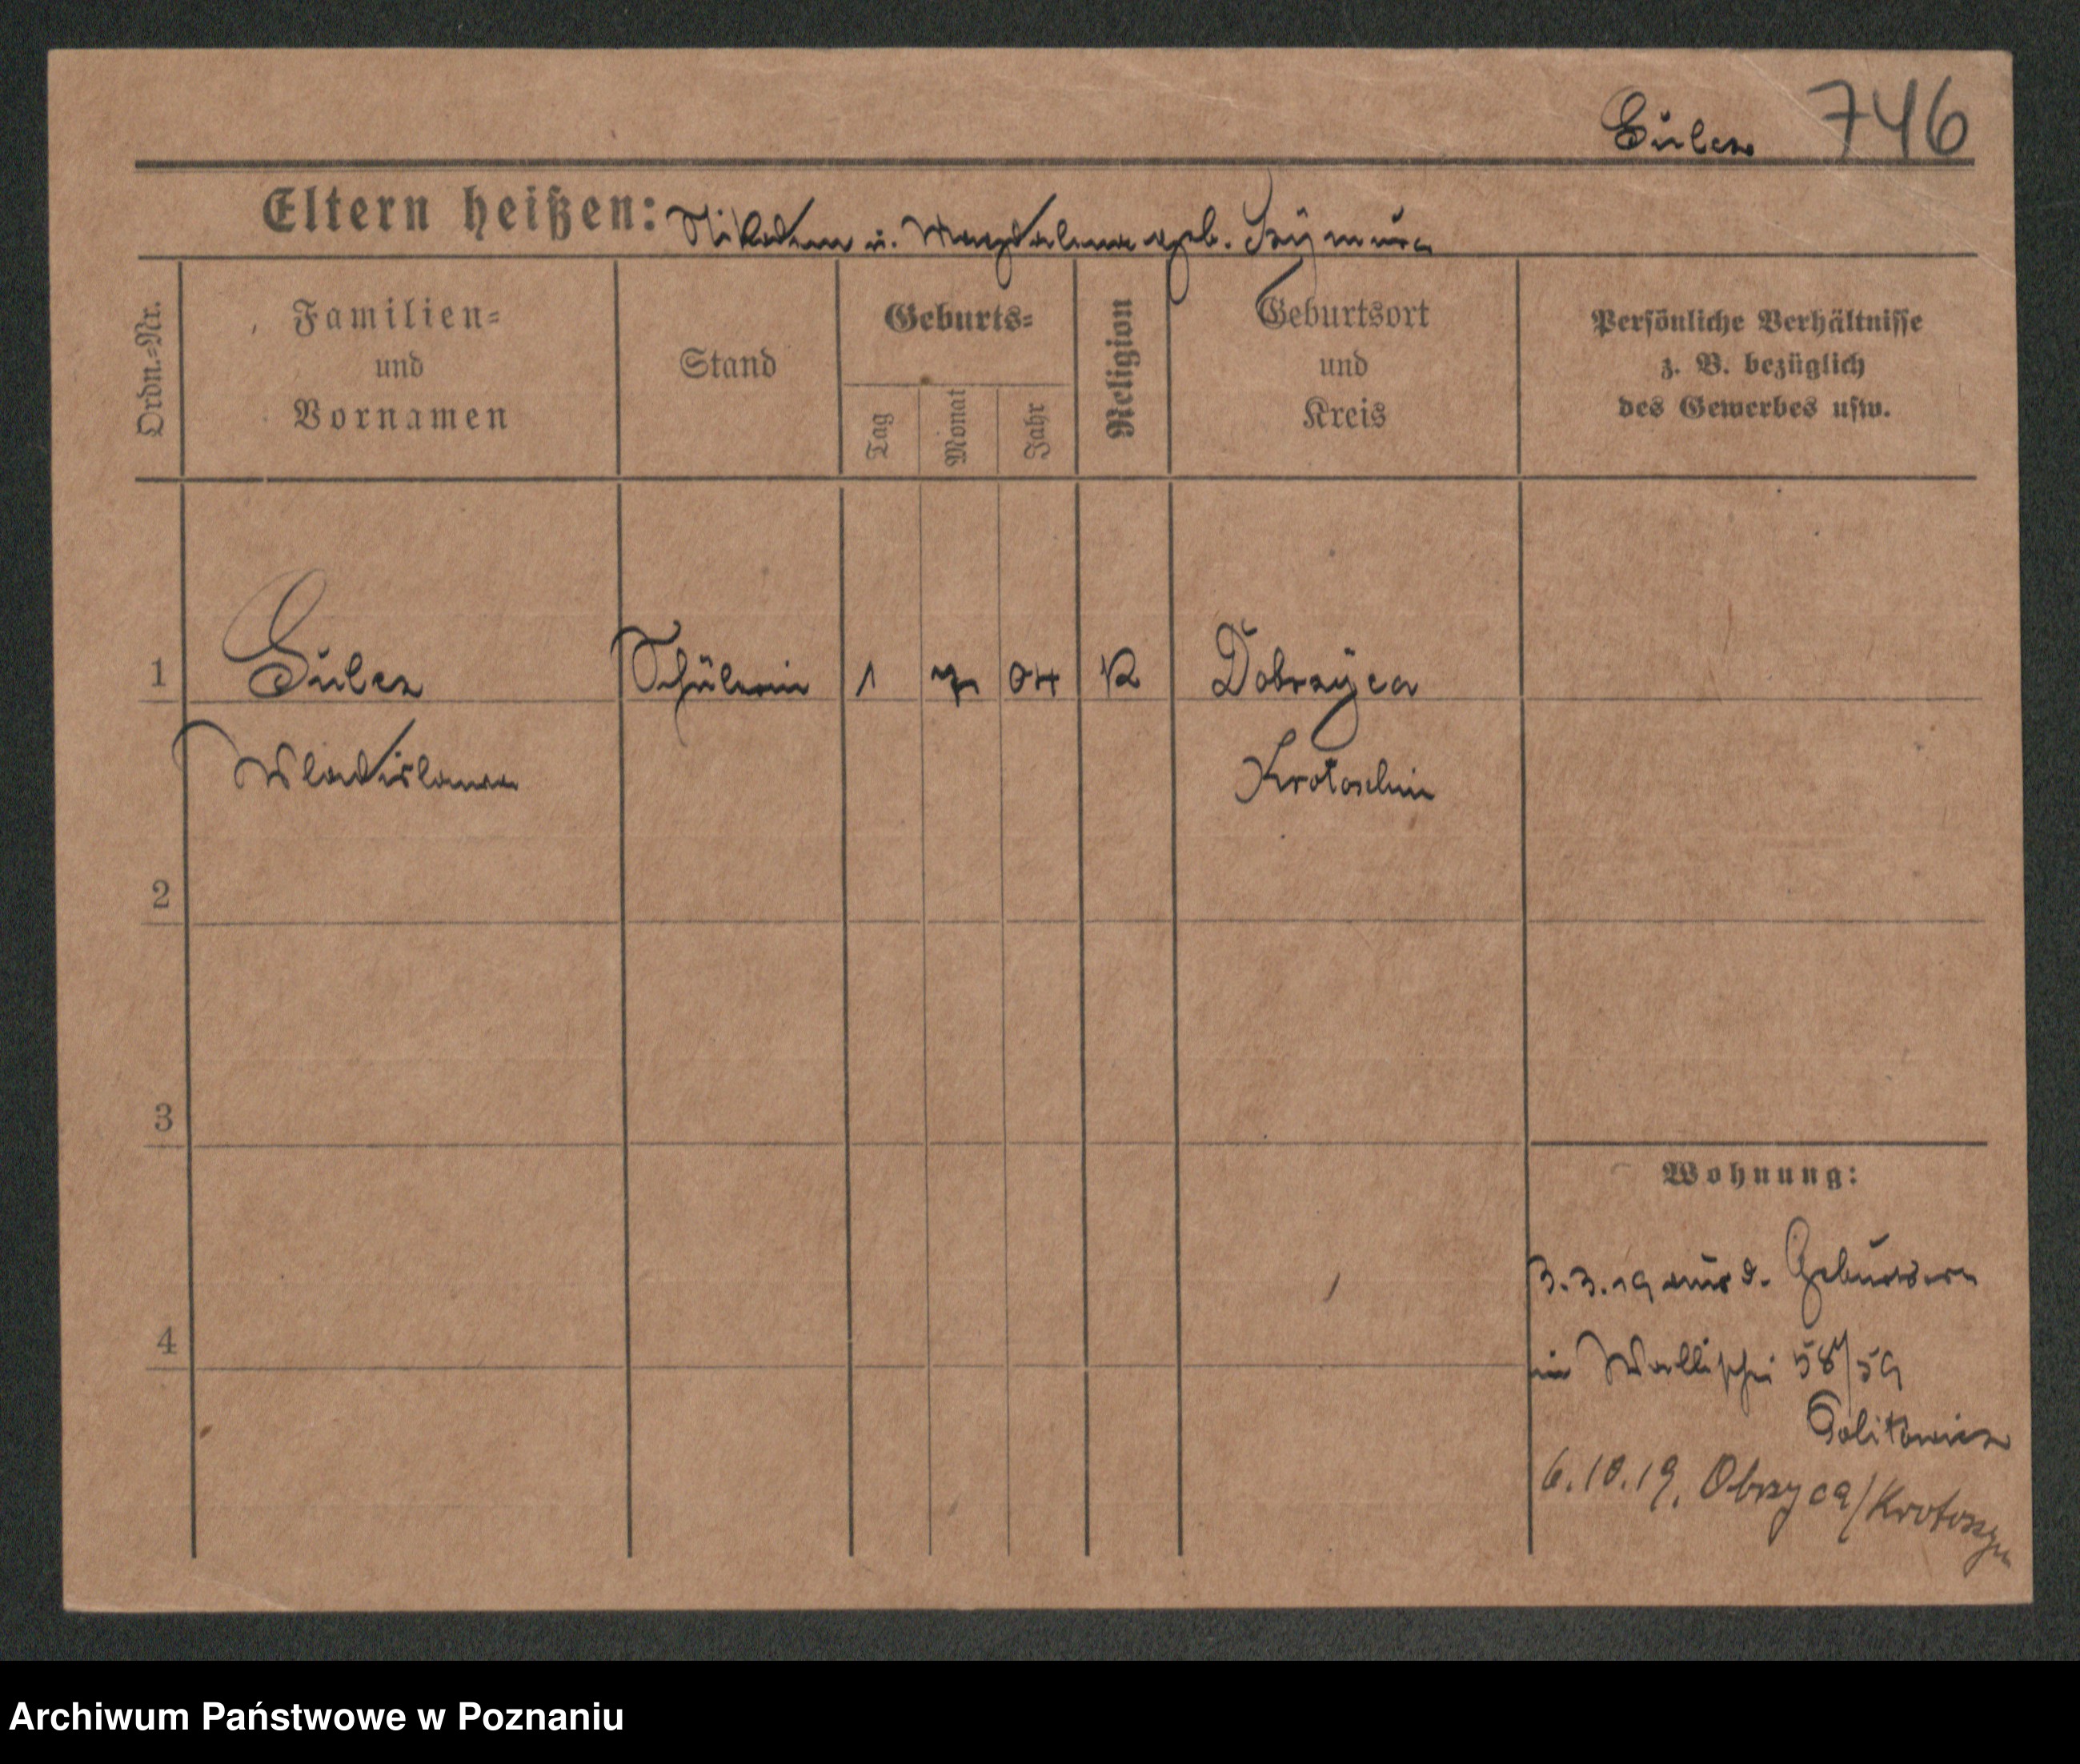 Gulcz 746
Eltern heißen: Nikodem u. Magdalena geb. Szymura
Ordn.-Nr.
Familien=
und
Vornamen
Stand
Geburts=
Tag
Monat
Jahr
Religion
Geburtsort
und
Kreis
Persönliche Verhältnisse
z. B. bezüglich
des Gewerbes usw.
1 Gulcz Schülerin 1 7 04 K Dobrzyca
Wladislawa Krotoschin
2
3
Wohnung:
3.3.19 aus d. Geburtsort
in Wallischei 58/59
4
6.10.19. Obrzyca/Krotoszyn
Archiwum Państwowe w Poznaniu